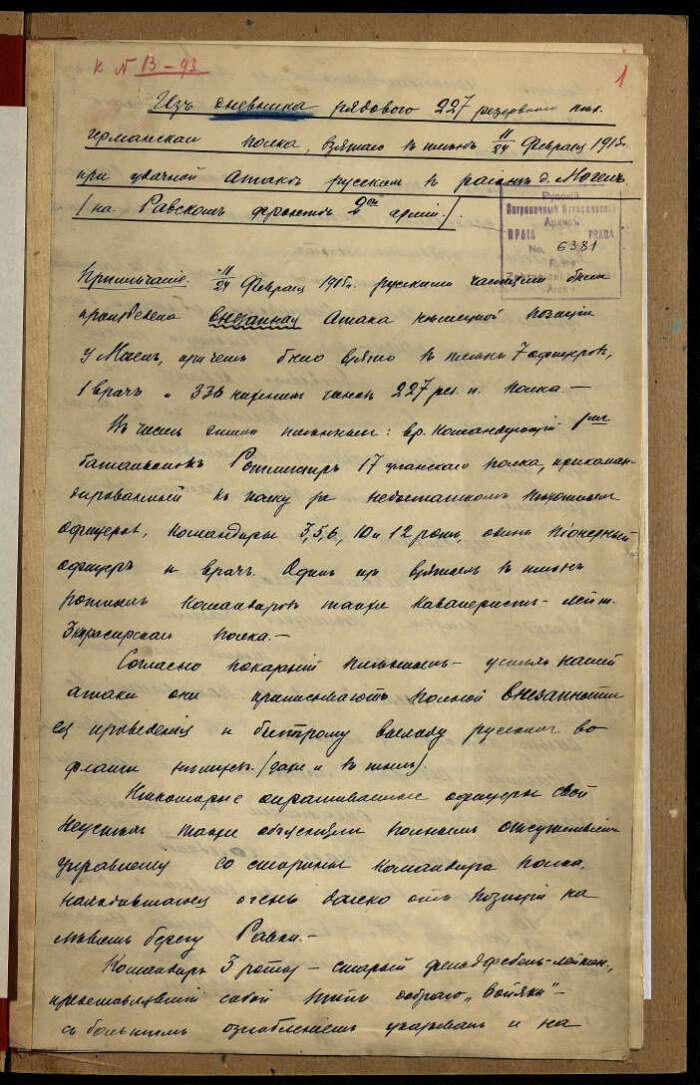 К № В-93
1
Изъ дневника рядового 227 резервного пѣх.
германскаго полка, взятаго въ плѣнъ 11/24 Февраля 1915г.
при удачной атакѣ русскихъ въ районѣ д. Могелы
/на Равскомъ фронтѣ 2ой арміи/.
Русскій
Заграничный Историческій
Архивъ
ПРАГА PRAHA
No. 6381
Ruský
Примѣчаніе. 11/24 Февраля 1915г. русскими частями была
произведена внезапная атака нѣмецкой позиціи
у Могелы, причемъ было взято въ плѣнъ 7 офицеровъ,
1 врачъ и 336 нижнихъ чиновъ 227 рез. п. полка.—
Въ числѣ плѣнныхъ: вр. командующій 1мъ
баталіономъ Ротмистръ 17 уланскаго полка, прикоман-
дированный къ полку за недостаткомъ пѣхотныхъ
офицеровъ, командиры 3,5,6, 10 и 12 ротъ, одинъ піонерный
офицеръ и врачъ. Одинъ изъ взятыхъ въ плѣнъ
ротныхъ командировъ также кавалеристъ- лейт.
3 кирасирскаго полка.—
Согласно показаній плѣнныхъ- успѣхъ нашей
атаки они приписываютъ полной внезапности
ея проведенія и быстрому выходу русскихъ во
фланги нѣмцевъ. /даже и въ тылъ/.
Нѣкоторые опрашиваемые офицеры свой
неуспѣхъ также объясняли полнымъ отсутствіемъ
управленія со стороны командира полка,
находившагося очень далеко отъ позицій на
лѣвомъ берегу Равки.—
Командиръ 3 роты – старый фельдфебель-лейтен.,
представлявшій собой типъ добраго „Вояки"—
съ большимъ озлобленіемъ указывалъ и на